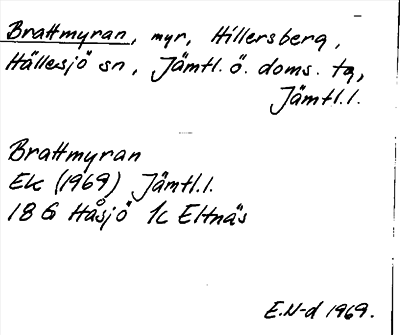 Brattmyran, myr, Hillersberg,
Hällesjö sn, Jämtl. ö. doms. tg,
Jämtl.l.
Brattmyran
Ek (1969) Jämtl.l.
18 G Håsjö 1c Eltnäs
E.N-d 1969.